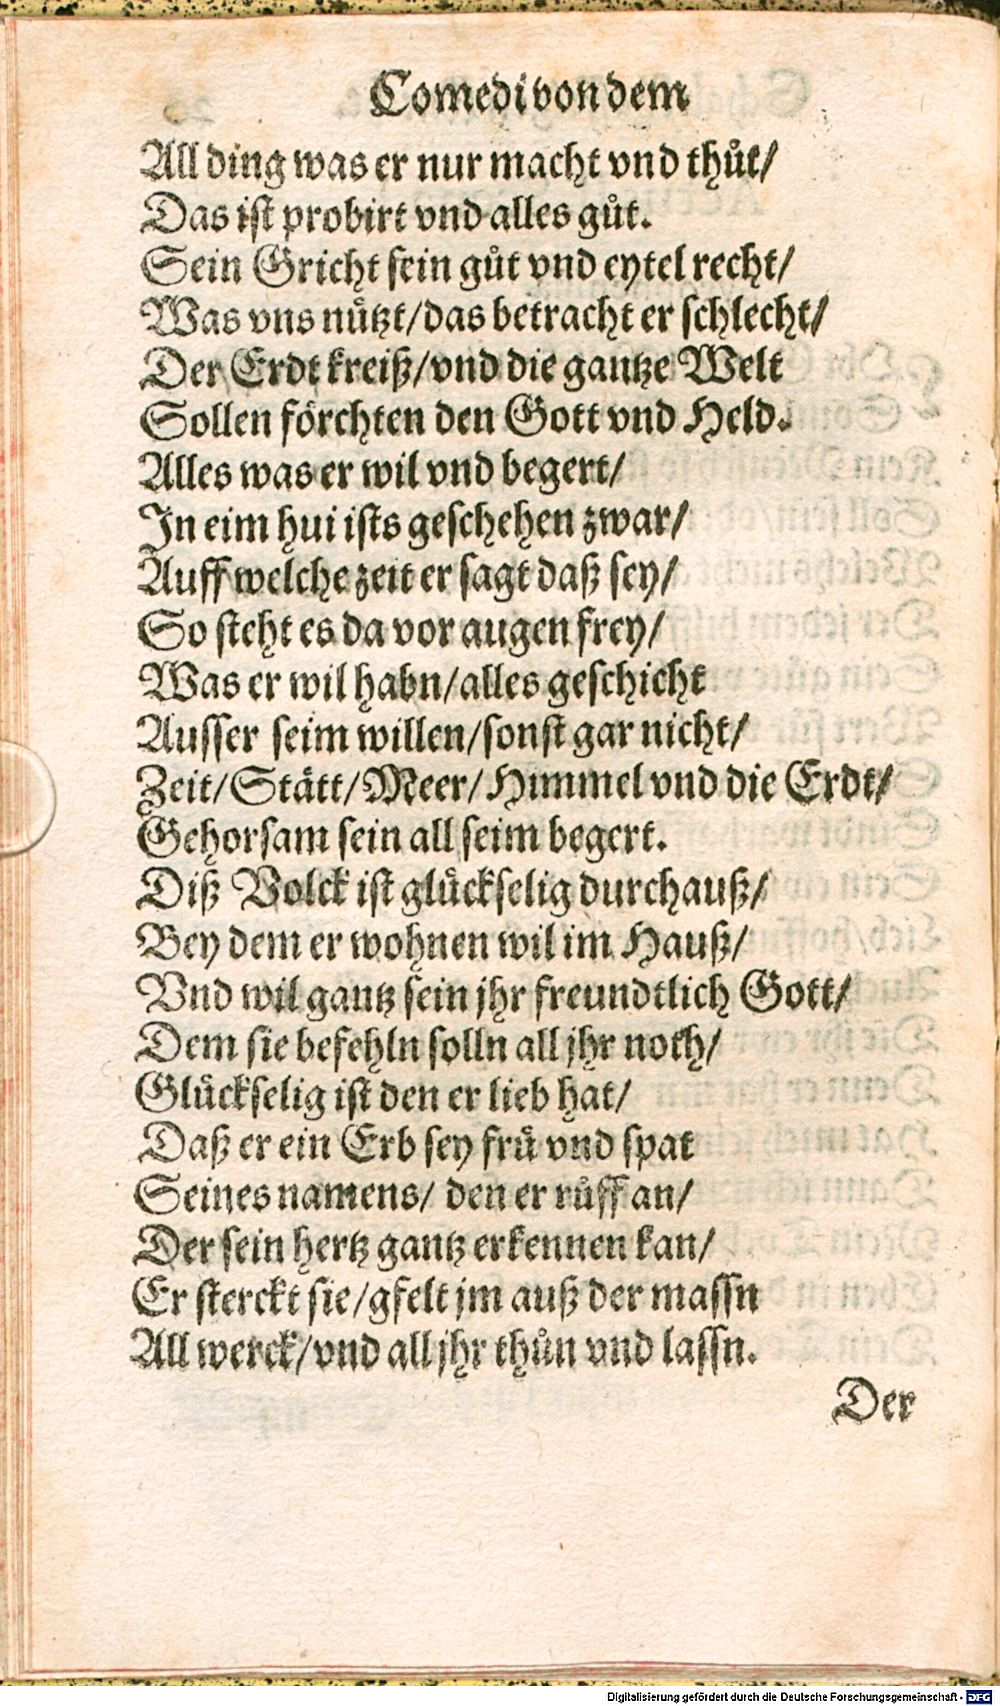 Comedi von dem
All ding was er nur macht vnd thůt/
Das ist probirt vnd alles gůt.
Sein Gricht sein gůt vnd eytel recht/
Was vns nůtzt/das betracht er schlecht/
Der Erdt kreiß/vnd die gantze Welt
Sollen förchten den Gott vnd Held.
Alles was er wil vnd begert/
In eim hui ists geschehen zwar/
Auff welche zeit er sagt daß sey/
So steht es da vor augen frey/
Was er wil habn/alles geschicht
Ausser seim willen/sonst gar nicht/
Zeit/Stätt/Meer/Himmel vnd die Erdt/
Gehorsam sein all seim begert.
Diß Volck ist glückselig durchauß/
Bey dem er wohnen wil im Hauß/
Vnd wil gantz sein jhr freundtlich Gott/
Dem sie befehln solln all jhr noth/
Glückselig ist den er lieb hat/
Daß er ein Erb sey frü vnd spat
Seines namens/ den er rüff an/
Der sein hertz gantz erkennen kan/
Er sterckt sie/gfelt jm auß der massn
All werck/vnd all jhr thůn vnd lassn.
Der
Digitalisierung gefördert durch die Deutsche Forschungsgemeinschaft - DFG